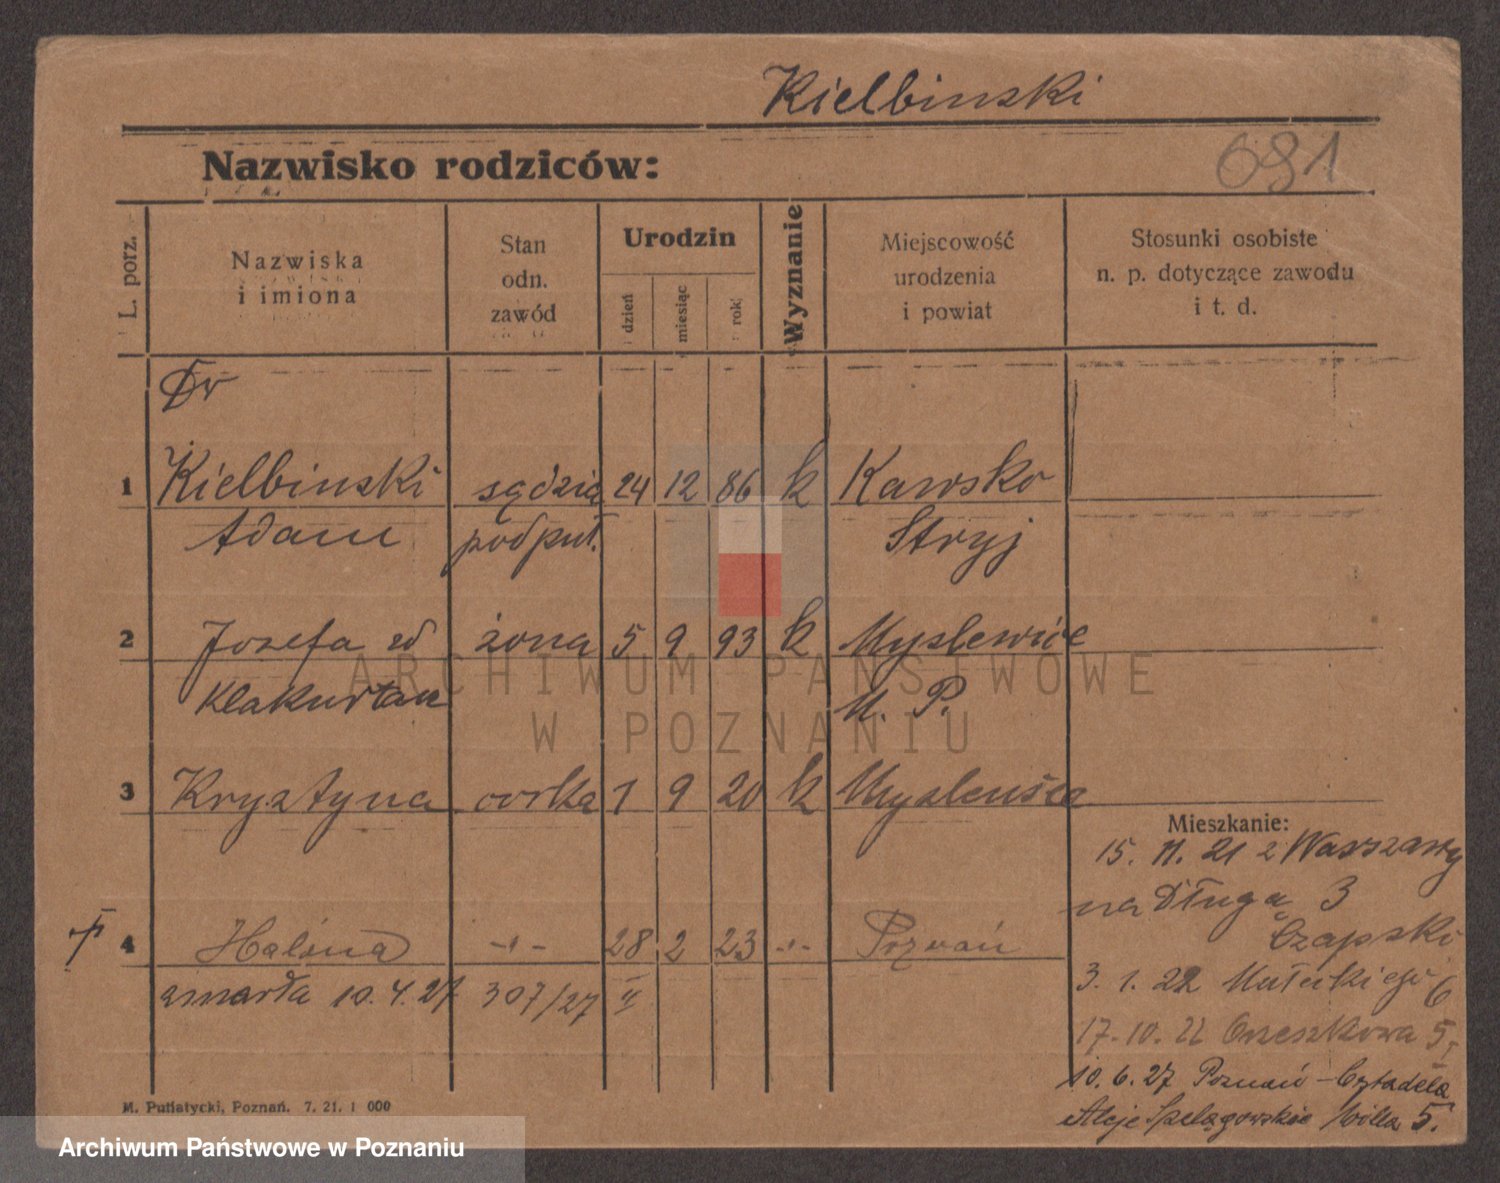 Kielbinski
Nazwisko rodziców:
691
L. porz.
Nazwiska
i imiona
Stan
odn.
zawód
Urodzin
dzień
miesiąc
rok
Wyznanie
Miejscowość
urodzenia
i powiat
Stosunki osobiste
n. p. dotyczące zawodu
i t. d.
Dr
1 Kielbinski sędzia 24 12 86 k Kawsko
Adam podpuł. Stryj
2 Jozefa zd żona 5 9 93 k
Klakurtan M. P.
3 Krystyna corka 1 9 20 k
Mieszkanie:
15. 11. 21 z Warszawy
na Długą 3
Czapski
4 Halina -"- 28 2 23 -"- Poznań
zmarła 10.4.27 307/27 II
3. 1. 22 6
17.10.22 Orzeszkowa 5
10.6.27 Poznań - Cytadela
Aleje Szelągowskie Willa 5.
M. Putiatycki, Poznań. 7. 21. 1 000
ARCHIWUM PAŃSTWOWE
W POZNANIU
Archiwum Państwowe w Poznaniu